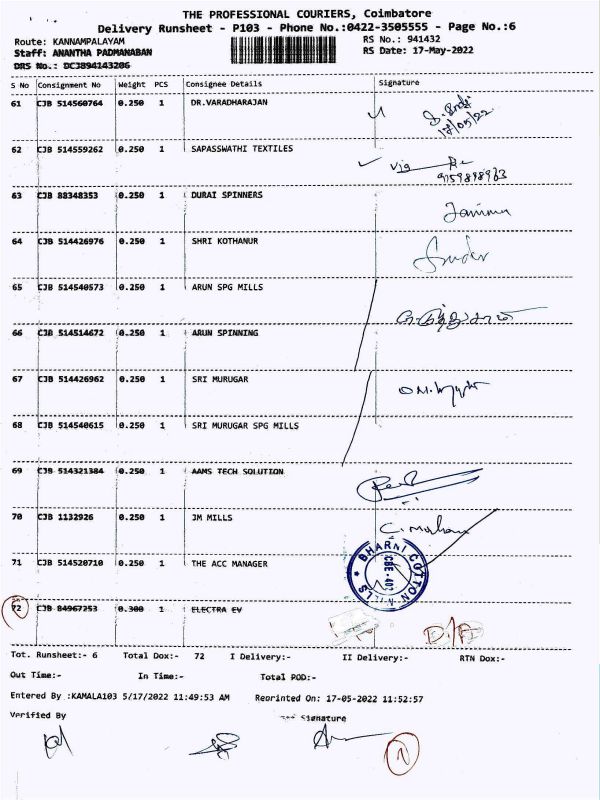 THE PROFESSIONAL COURIERS, Coimbatore
Delivery Runsheet - P103 - Phone No.:0422-3505555 - Page No.:6
Route: KANNAMPALAYAM RS No.: 941432
Staff: ANANTHA PADMANABAN RS Date: 17-May-2022
DRS No.: DCJ894143206
S No Consignment No Weight PCS Consignee Details Signature
61 CJB 514560764 0.250 1 DR.VARADHARAJAN
17/05/22
62 CJB 514559262 0.250 1 SAPASSWATHI TEXTILES
9159898963
63 CJB 88348353 0.250 1 DURAI SPINNERS
64 CJB 514426976 0.250 1 SHRI KOTHANUR
65 CJB 514540573 0.250 1 ARUN SPG MILLS
66 CJB 514514672 0.250 1 ARUN SPINNING
67 CJB 514426962 0.250 1 SRI MURUGAR
68 CJB 514540615 0.250 1 SRI MURUGAR SPG MILLS
69 CJB 514321384 0.250 1 AAMS TECH SOLUTION
70 CJB 1132926 0.250 1 JM MILLS
C. Mohan
71 CJB 514520710 0.250 1 THE ACC MANAGER
BHARNI COTTON MILLS
72 CJB 84967253 0.300 1 ELECTRA EV
D/A
Tot. Runsheet:- 6 Total Dox:- 72 I Delivery:- II Delivery:- RTN Dox:-
Out Time:- In Time:- Total POD:-
Entered By :KAMALA103 5/17/2022 11:49:53 AM Reprinted On: 17-05-2022 11:52:57
Verified By Signature
1